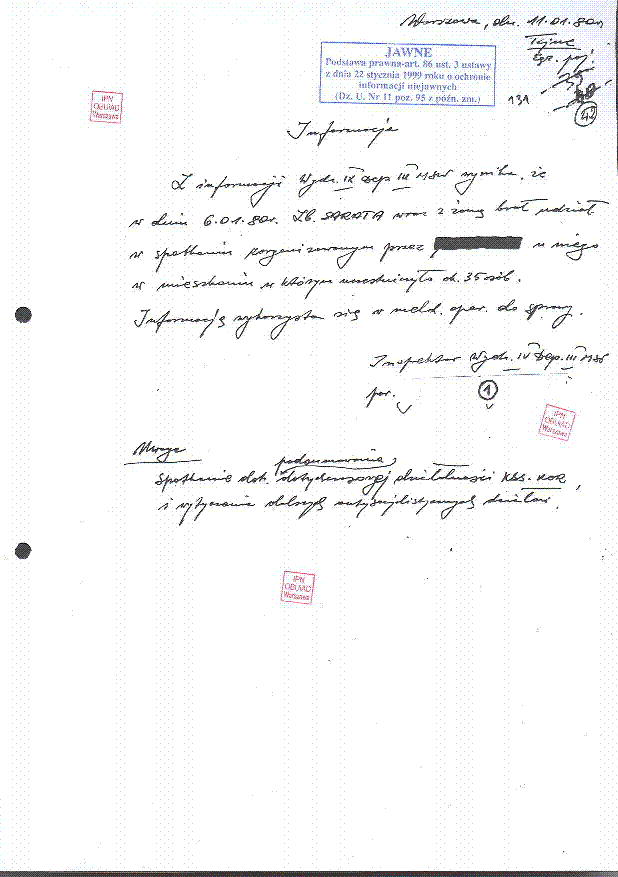 Warszawa, dn. 11.01.80r
Tajne
Egz. poj.
JAWNE
Podstawa prawna-art. 86 ust. 3 ustawy
z dnia 22 stycznia 1999 roku o ochronie
informacji niejawnych
(Dz. U. Nr 11 poz. 95 z późn. zm.)
131
42
IPN
OBUiAD
Warszawa
Informacja
Z informacji Wydz. IX Dep III MSW wynika, że
w dniu 6.01.80r. Zb. SARATA wraz z żoną brał udział
w spotkaniu zorganizowanym przez u niego
w mieszkaniu w którym uczestniczyło ok. 35 osób.
Informację wykorzysta się w meld. oper. do sprawy.
Inspektor Wydz. IV Dep. III MSW
por.
1
IPN
OBUiAD
Warszawa
Uwaga
podsumowania,
Spotkanie dot. dotychczasowej działalności KSS-KOR,
i wytyczenia dalszych antysocjalistycznych działań.
IPN
OBUiAD
Warszawa